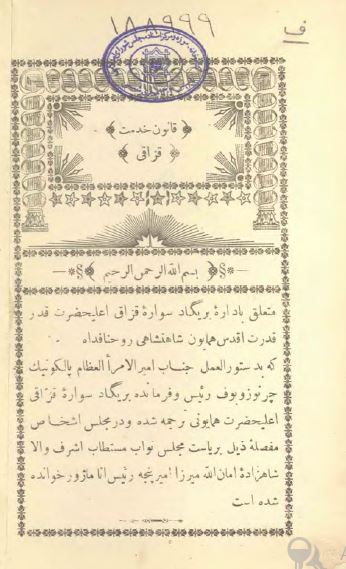 ف
۱۸۸۹۹۹
قانون خدمت
قزاقی
بسم الله الرحمن الرحیم
متعلق بادارهٔ بریگاد سوارهٔ قزاق اعلیحضرت قدر
قدرت اقدس همایون شاهنشاهی روحنافداه
که بدستورالعمل جناب امیرالامرأ العظام پالکونیک
چرنوزوبوف رئیس وفرمانده بریگاد سوارهٔ قزاقی
اعلیحضرت همایونی ترجمه شده ودرمجلس اشخاص
مفصلهٔ ذیل بریاست مجلس نواب مستطاب اشرف والا
شاهزادهٔ امان الله میرزا امیرپنجه رئیس اتاماژور خوانده
شده است